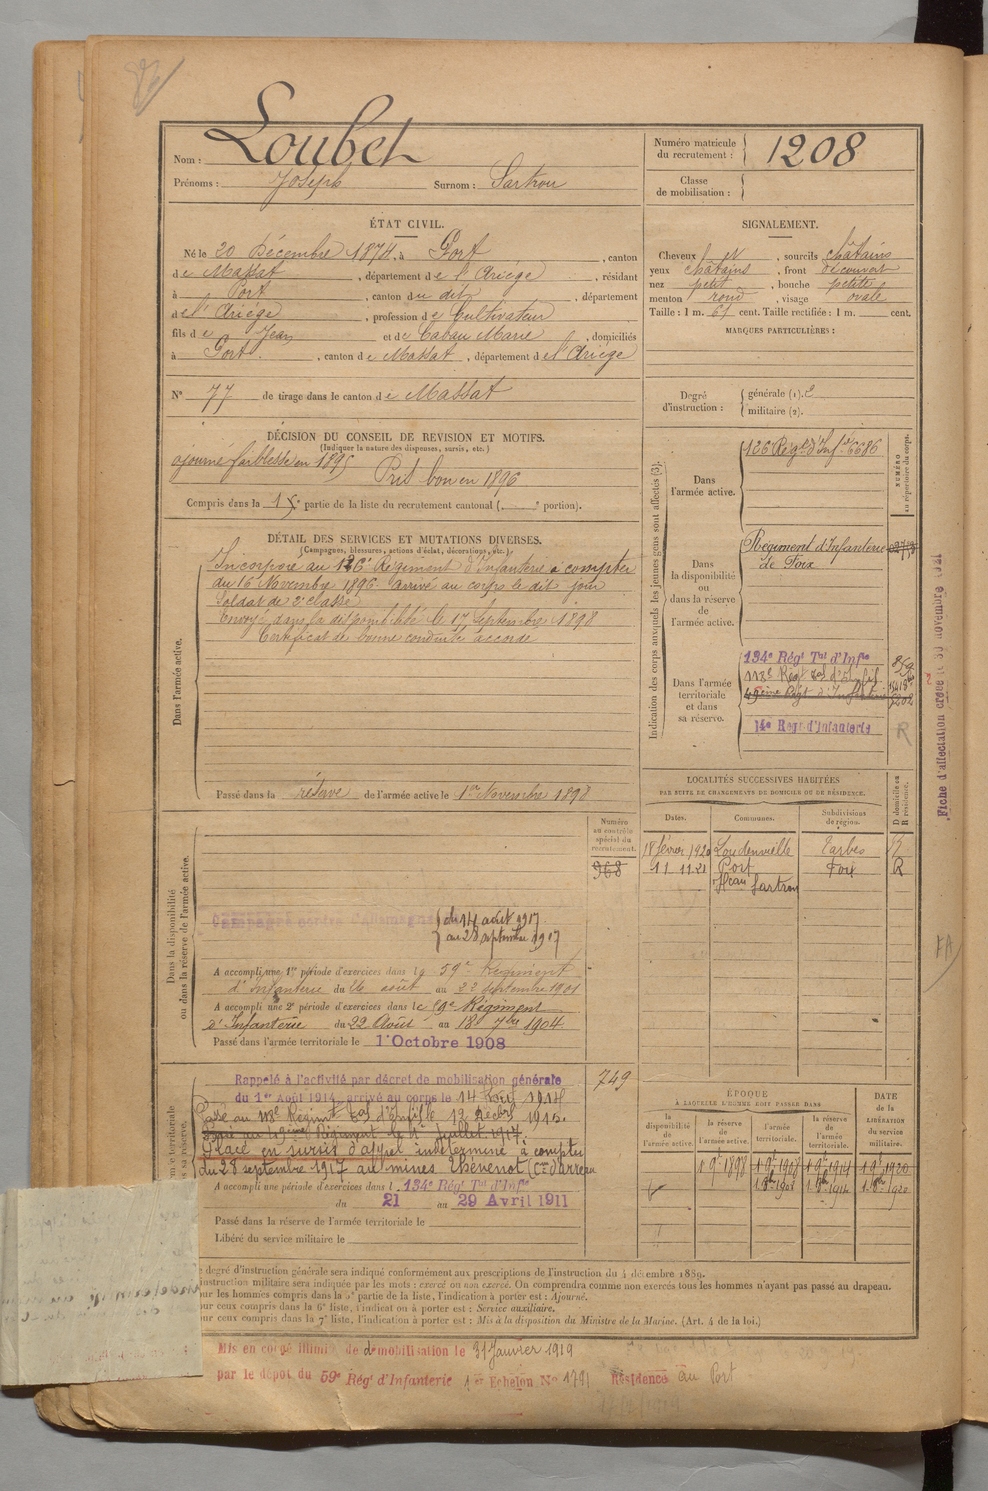 86
Nom : Loubet
Prénoms : Joseph Surnom : Sartrou
Numéro matricule du recrutement : 1208
Classe de mobilisation :
ÉTAT CIVIL.
Né le 20 Décembre 1874, à Port, canton
de Massat, département de l'Ariège, résidant
à Port, canton du dit, département
de l'Ariège, profession de Cultivateur
fils de Jean et de Cabau Marie, domiciliés
à Port, canton de Massat, département de l'Ariège
N° 77 de tirage dans le canton de Massat
SIGNALEMENT.
Cheveux et, sourcils châtains
yeux châtains, front découvert
nez petit, bouche petite
menton rond, visage ovale
Taille : 1 m. 61 cent. Taille rectifiée : 1 m. cent.
MARQUES PARTICULIÈRES :
Degré d'instruction : générale (1). 2
militaire (2).
DÉCISION DU CONSEIL DE REVISION ET MOTIFS.
(Indiquer la nature des dispenses, sursis, etc.)
ajourné faiblesse en 1895
Pris bon en 1896
Compris dans la 1re partie de la liste du recrutement cantonal ( e portion).
DÉTAIL DES SERVICES ET MUTATIONS DIVERSES.
(Campagnes, blessures, actions d'éclat, décorations, etc.)
Dans l'armée active.
Incorporé au 126e Régiment d'Infanterie à compter
du 16 Novembre 1896 arrivé au corps le dit jour
Soldat de 2e classe
Envoyé dans la disponibilité le 17 Septembre 1898
Certificat de bonne conduite accordé
Passé dans la réserve de l'armée active le 1er Novembre 1898
Indication des corps auxquels les jeunes gens sont affectés (3).
NUMÉRO au répertoire du corps.
Dans l'armée active. 126 Régt d'Inf. 6686
Dans la disponibilité ou dans la réserve de l'armée active.
Régiment d'Infanterie
de Foix
Dans l'armée territoriale et dans sa réserve.
134e Régt Tal d'Infie 859
118e Régt Tal d'Infie
49eme Régt d'Infanterie
14e Régt d'Infanterie R
Fiche d'affectation créée le 30 novembre 1921
LOCALITÉS SUCCESSIVES HABITÉES
PAR SUITE DE CHANGEMENTS DE DOMICILE OU DE RÉSIDENCE.
Dates. Communes. Subdivisions de région. D domicile ou R résidence.
18 février 1920 Loudenvielle Tarbes R
11 11 21 Port Foix R
Hau Sartrou
Dans la disponibilité ou dans la réserve de l'armée active.
Numéro au contrôle spécial du recrutement.
968
Campagne contre l'Allemagne du 14 août 1917
au 28 septembre 1917
A accompli une 1re période d'exercices dans le 59e Régiment
d'Infanterie du 26 août au 22 septembre 1901
A accompli une 2e période d'exercices dans le 59e Régiment
d'Infanterie du 22 Août au 18 7bre 1904
Passé dans l'armée territoriale le 1er Octobre 1908
749
Rappelé à l'activité par décret de mobilisation générale
du 1er Août 1914, arrivé au corps le 14 Août 1914
Passé au 118e Régimt Tal d'Infie le 12 Décbre 1915.
Passé au 49ème Régiment le 1er Juillet 1917.
Placé en sursis d'appel indéterminé à compter
du 28 septembre 1917 au mines Thénenot (Cie d'Arreau
A accompli une période d'exercices dans l 134e Régt Tal d'Infie
du 21 au 29 Avril 1911
Passé dans la réserve de l'armée territoriale le
Libéré du service militaire le
ÉPOQUE
À LAQUELLE L'HOMME DOIT PASSER DANS
DATE de la LIBÉRATION du service militaire.
la disponibilité de l'armée active. la réserve de l'armée active. l'armée territoriale. la réserve de l'armée territoriale.
1 9bre 1898 1 9bre 1908 1 9bre 1914 1 9bre 1920
1 8bre 1908 1 8bre 1914 1 8bre 1920
e degré d'instruction générale sera indiqué conformément aux prescriptions de l'instruction du 4 décembre 1889.
instruction militaire sera indiquée par les mots : exercé ou non exercé. On comprendra comme non exercés tous les hommes n'ayant pas passé au drapeau.
ur les hommes compris dans la 5e partie de la liste, l'indication à porter est : Ajourné.
ur ceux compris dans la 6e liste, l'indication à porter est : Service auxiliaire.
ur ceux compris dans la 7e liste, l'indication à porter est : Mis à la disposition du Ministre de la Marine. (Art. 4 de la loi.)
Mis en congé illimité de démobilisation le 31 Janvier 1919
par le dépôt du 59e Régt d'Infanterie 1er Echelon No 1791 Résidence au Port